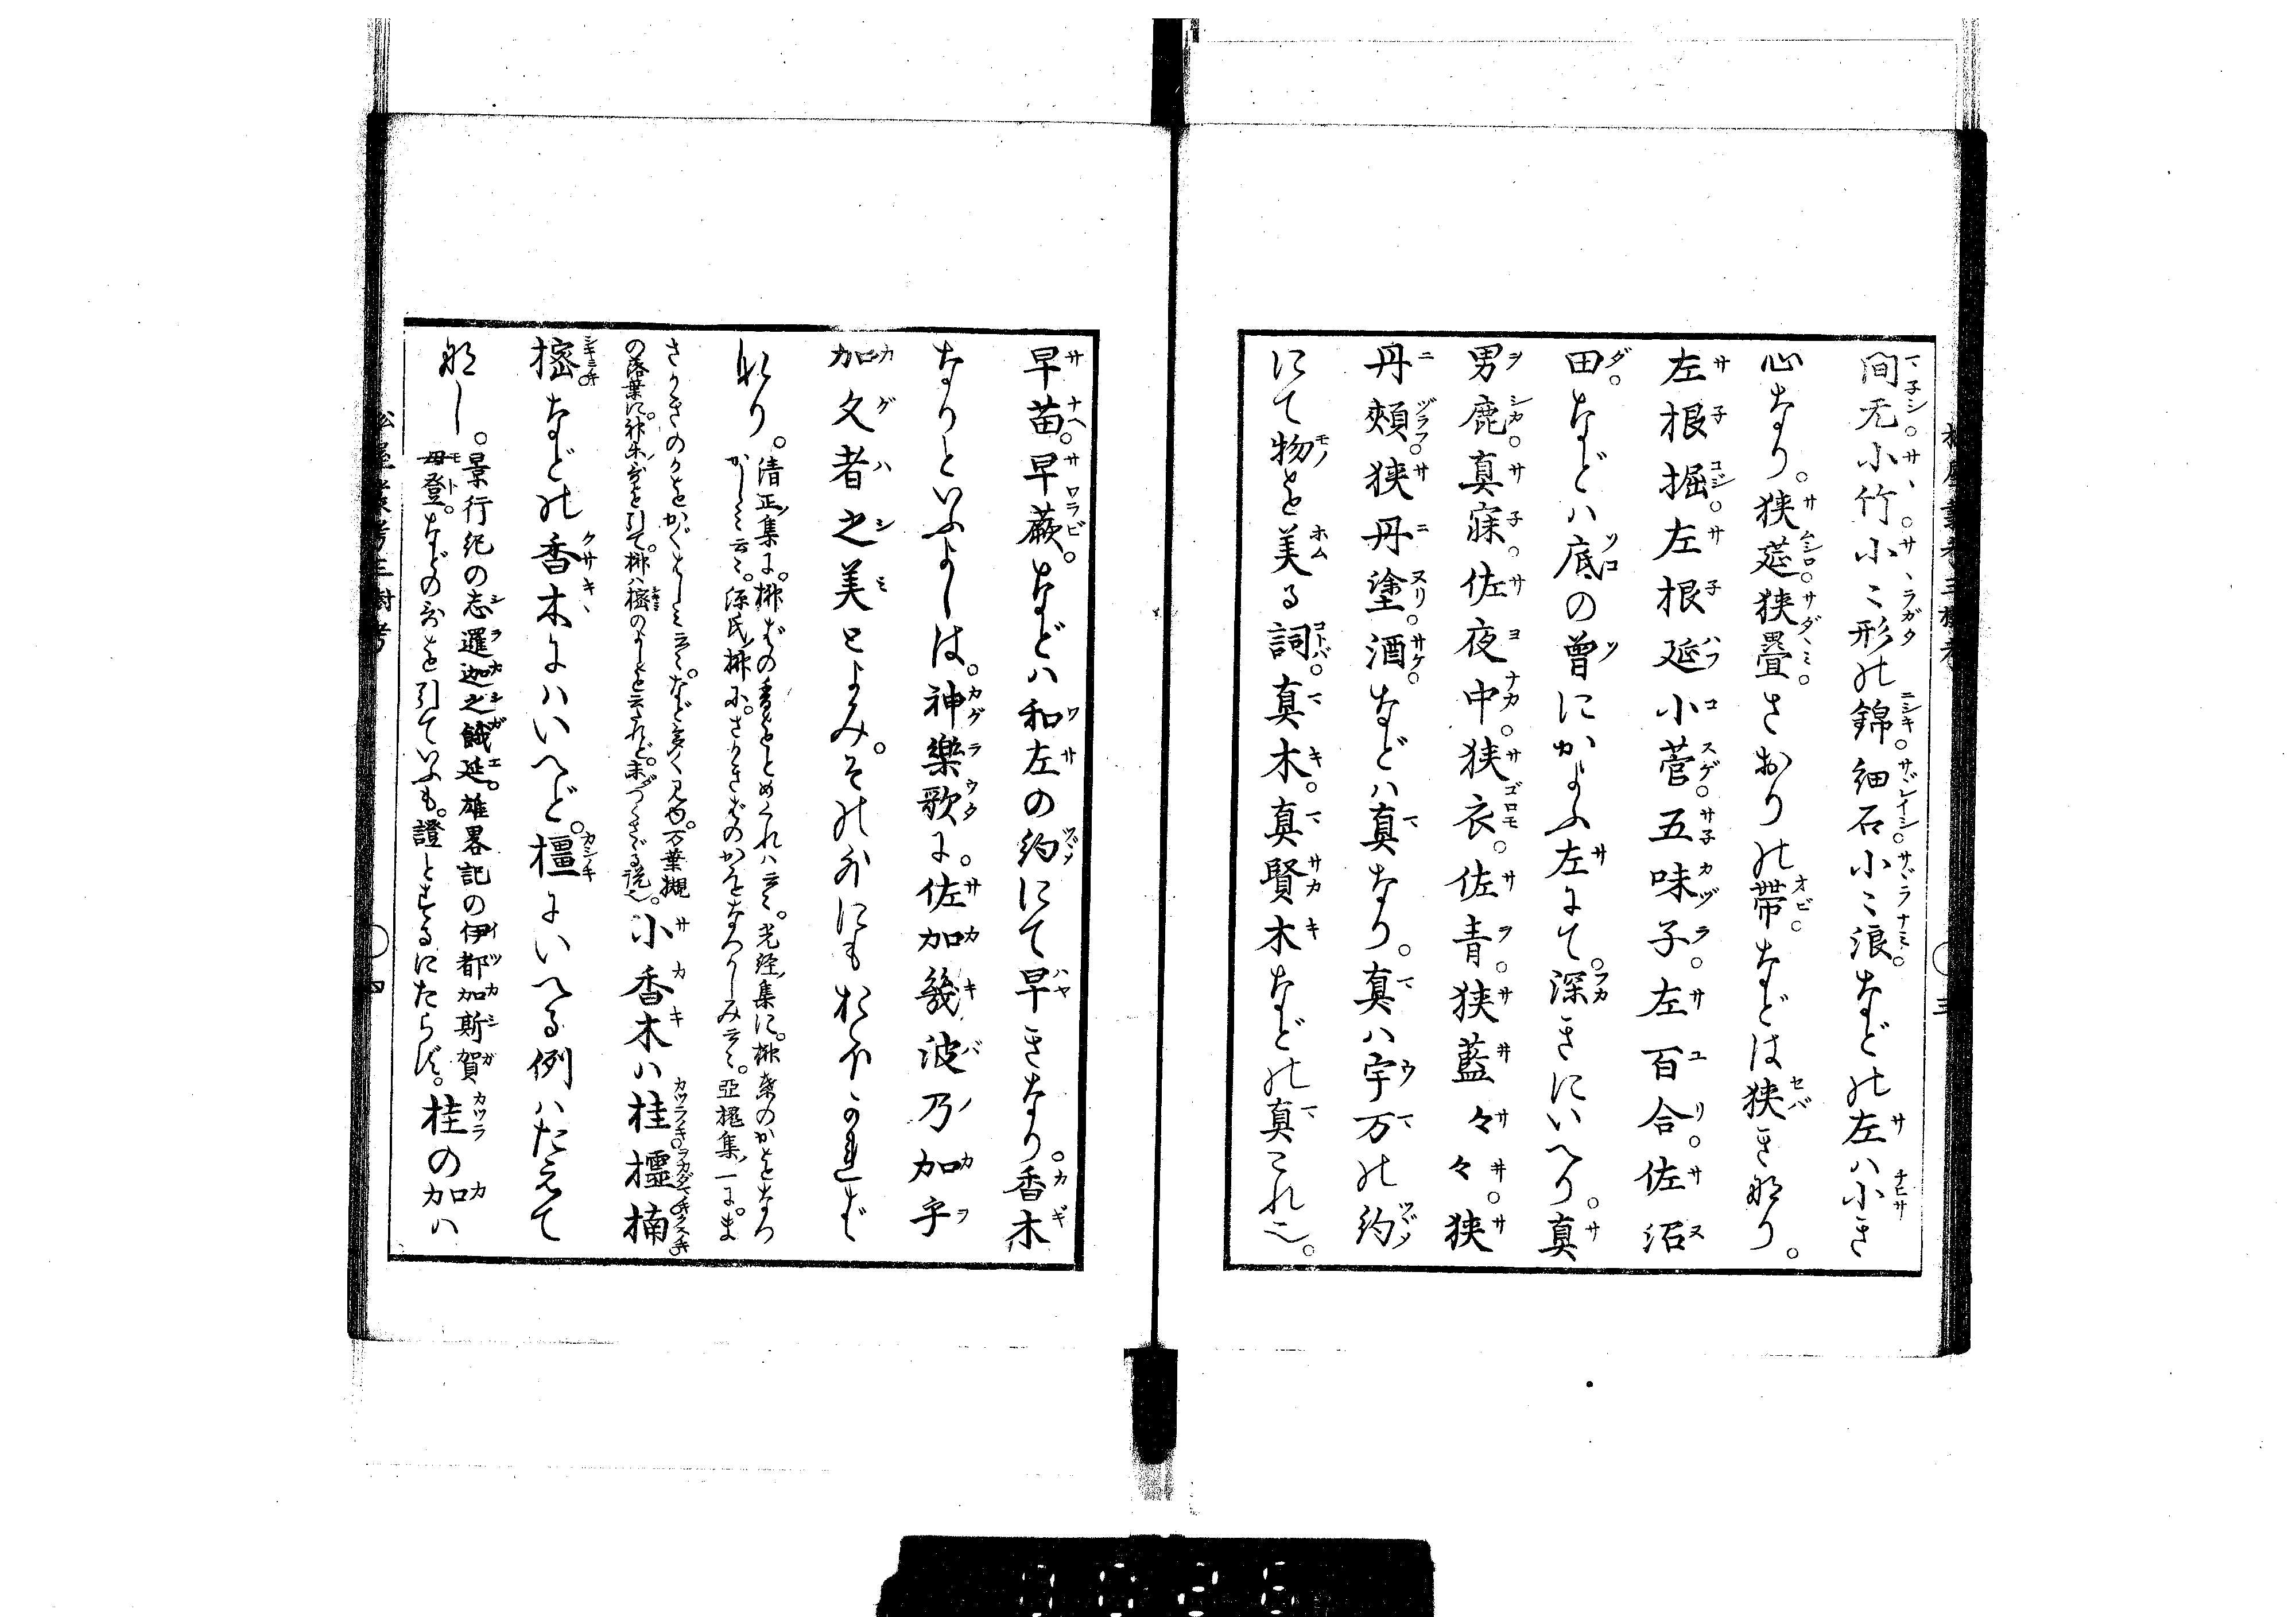 間无小竹小〻形の錦。細石。小〻浪。などの左ハ小き
心なり。狭莚。狭畳。さおりの帯。などは狭き那り。
左根掘。左根延小菅。五味子。左百合。佐沼
田。などハ底の曽にかよふ左にて。深きにいへり。真
男鹿。真寐。佐夜中。狭衣。佐青。狭藍々々。狭
丹頰。狭丹塗。酒。などハ真なり。真ハ宇万の約
にて物を美る詞。真木。真賢木などの真これ也。
早苗。早蕨。などハ和左の約にて早きなり。香木
なりといふよしは。神樂歌に。佐加幾波乃加乎
加久者之美とよみ。その外にもおほかれど
なり。清正集に。榊葉の香をとめくれハ云々。光経集に。榊葉のかをとなつ
かしミ云々。源氏榊に。さかき葉のかをなつかしみ云々。亞槐集一に。ま
さかきのかをかぐはしミ云々。など多く見ゆ。万葉槻
の落葉に。神楽哥を引て。榊ハ樒のよしを云たれど。未づくさゞる説也。小香木ハ桂橿楠
樒。などの香木にハいへど。橿にいへる例ハたえて
那し。景行紀の志邏迦之餓延。雄畧記の伊都加斯賀
母登。などの哥を引ていふも。證とするにたらず。桂の加ハ